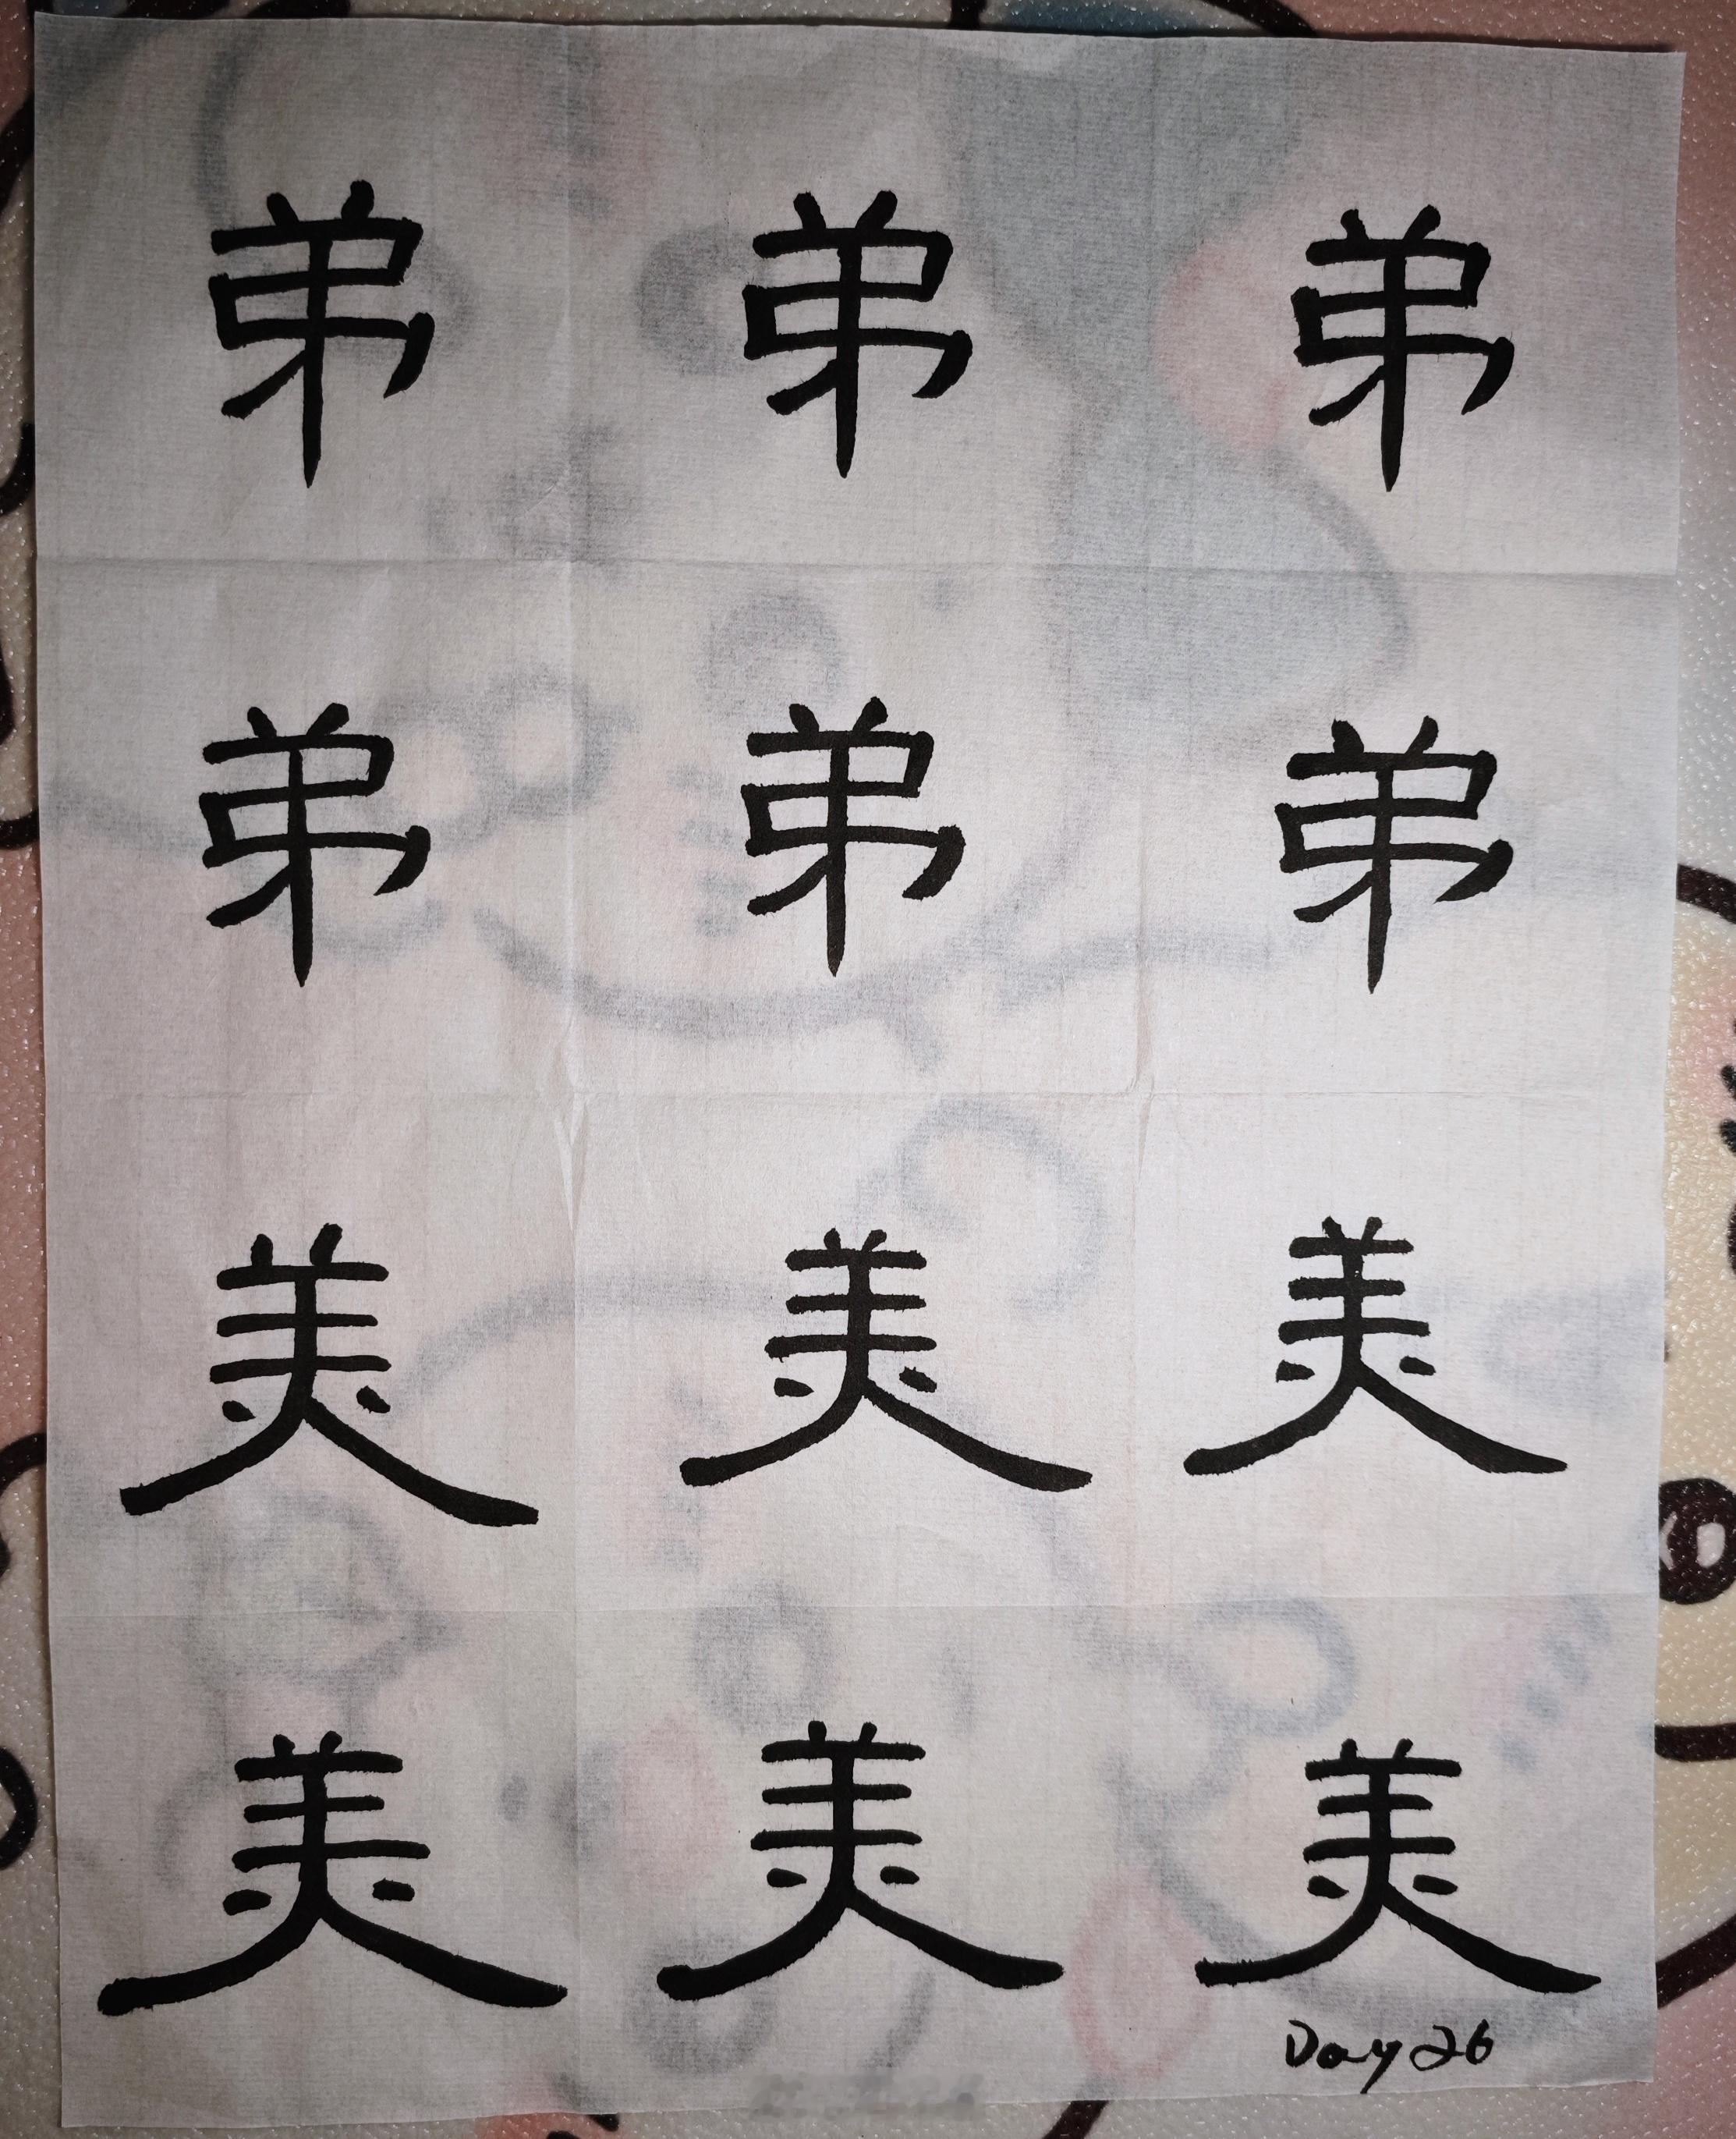 弟弟弟
弟弟弟
美美美
美美美
Day26